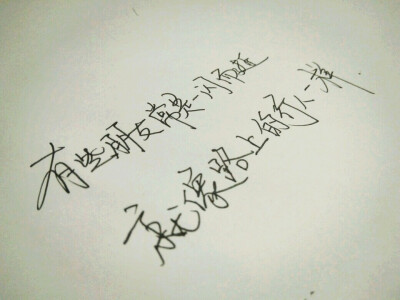 有些朋友常常一闪而过
就像路上的行人一样